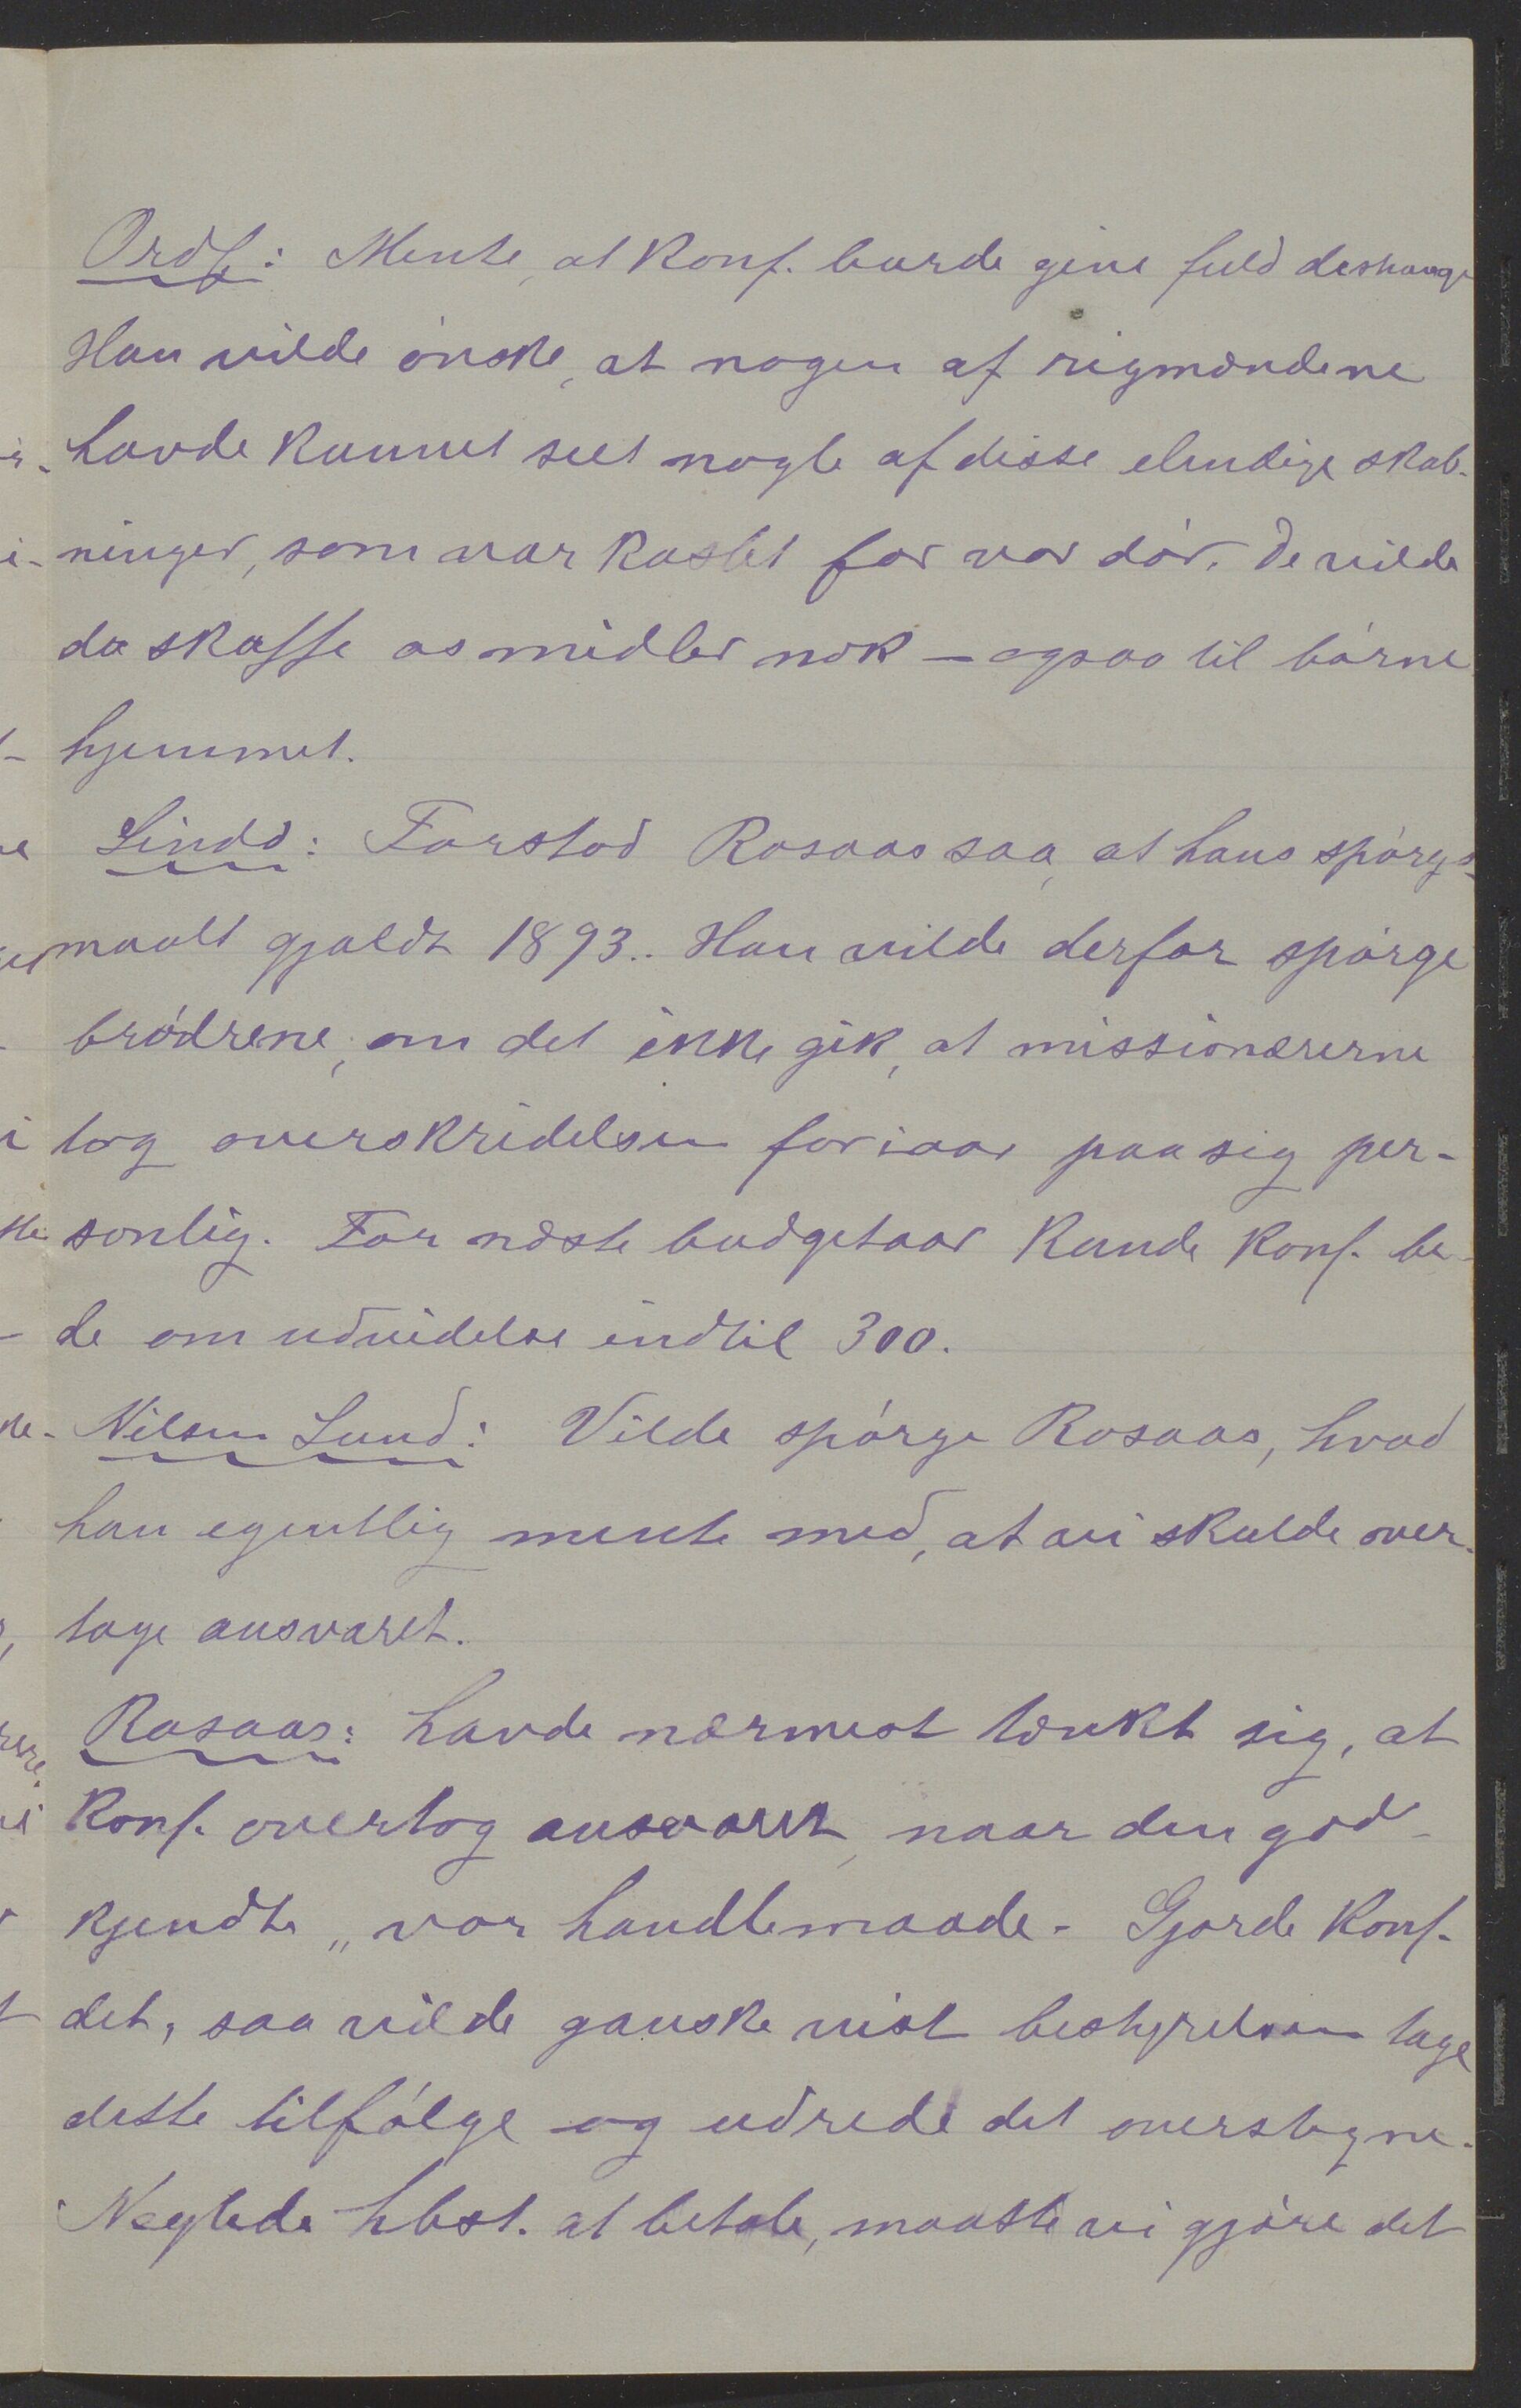 Ordf: Mente, at Konf. burde give fuld decharge
Han vilde ónske, at nogen af rigmændene
havde kunnet seet nogle af disse elendige skab-
ninger, som var kastet for vor dór. De vilde
da skaffe os midler nok – ogsaa til bórne
hjemmet.
Lindø: Forstod Rosaas saa, at hans spórgs-
maalt gjaldt 1893.. Han vilde derfor spórge
bródrene, om det ikke gik, at missionærerne
tog overskridelsen for iaar paa sig per-
sonlig. For næste budgetaar kunde Konf. be-
de om udvidelse indtil 300.
Nilsen Lund: Vilde spórge Rosaas, hvad
han egentlig mente med, at vi skulde over-
tage ansvaret.
Rosaas: havde nærmest tænkt sig, at
Konf. overtog ansvaret, naar den god-
kjendte „ vor handlemaade. Gjorde Konf.
det, saa vilde ganske vist bestyrelsen tage
dette tilfólge og udrede det overstegne.
Neglede hbst. at betale, maatte vi gjóre det